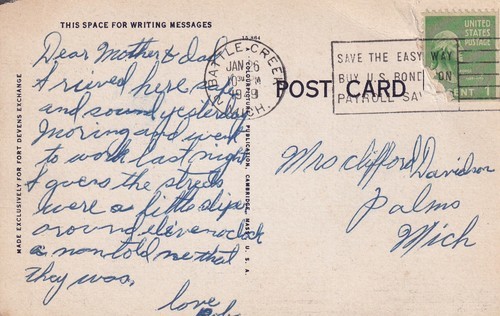 THIS SPACE FOR WRITING MESSAGES
Dear Mother & dad
Arrived here safe
and sound yesterday
Morning and went
to work last night
I guess the streets
were a little slip
around eleven oclock
a man told me that
they was.
love
MADE EXCLUSIVELY FOR FORT DEVENS EXCHANGE
COLOURPICTURE PUBLICATION, CAMBRIDGE, MASS., U. S. A.
BATTLE CREEK
JAN 26
MICH.
POST CARD
SAVE THE EASY WAY
BUY U.S. BONDS ON
PAYROLL SAV
UNITED
STATES
POSTAGE
CENT 1
Mrs Clifford Davidson
Palms
Mich